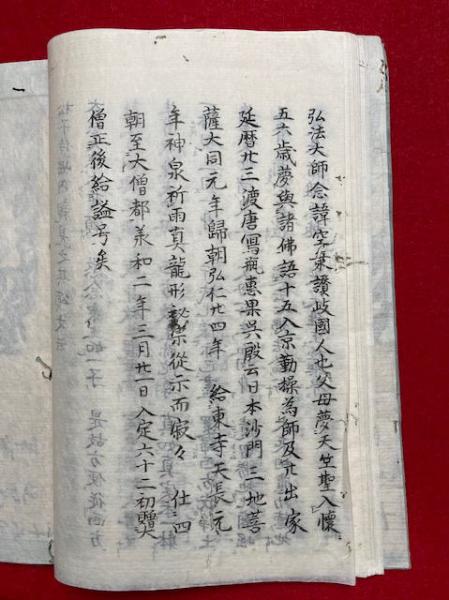 弘法大師念諱空東讃岐國人也父母夢天竺聖入懷
五六歳夢與諸佛語十五入京勤操為師及廾出家
延暦廿三渡唐寫瓶惠果呉殷云日本沙門三地菩
薩大同元年歸朝弘仁廿四年 給東寺天長元
年神泉祈雨真龍形 從示而寂々 仕四
朝至大僧都義和二年三月廿一日入定六十二初贈大
僧正後給謚号矣